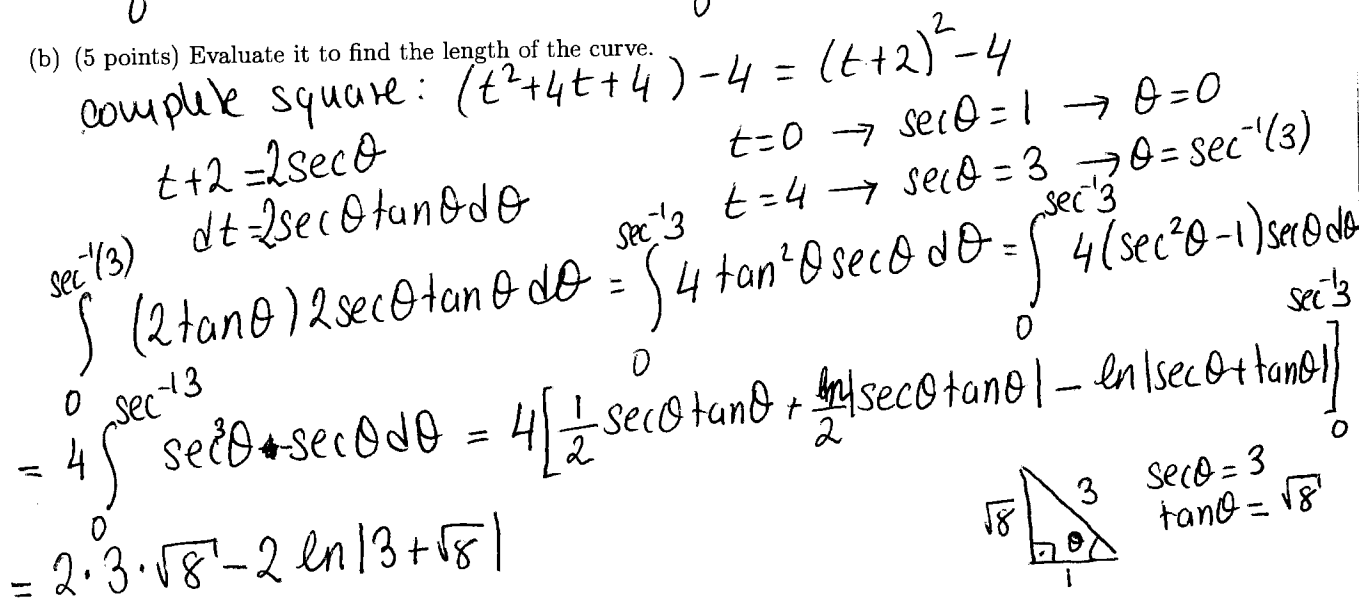 (b) (5 points) Evaluate it to find the length of the curve.
complete square: (t²+4t+4)-4 = (t+2)²-4
t+2 = 2secθ
t=0 → secθ = 1 → θ=0
dt = 2secθtanθdθ
t=4 → secθ = 3 → θ = sec⁻¹(3)
∫₀^{sec⁻¹(3)} (2tanθ)2secθtanθdθ = ∫₀^{sec⁻¹3} 4tan²θsecθdθ = ∫₀^{sec⁻¹3} 4(sec²θ-1)secθdθ
= 4∫₀^{sec⁻¹3} sec³θ-secθdθ = 4[1/2 secθtanθ + ln/2 |secθtanθ| - ln|secθ+tanθ|]₀^{sec⁻¹3}
= 2·3·√8 - 2 ln|3+√8|
√8 3 θ 1
secθ = 3
tanθ = √8